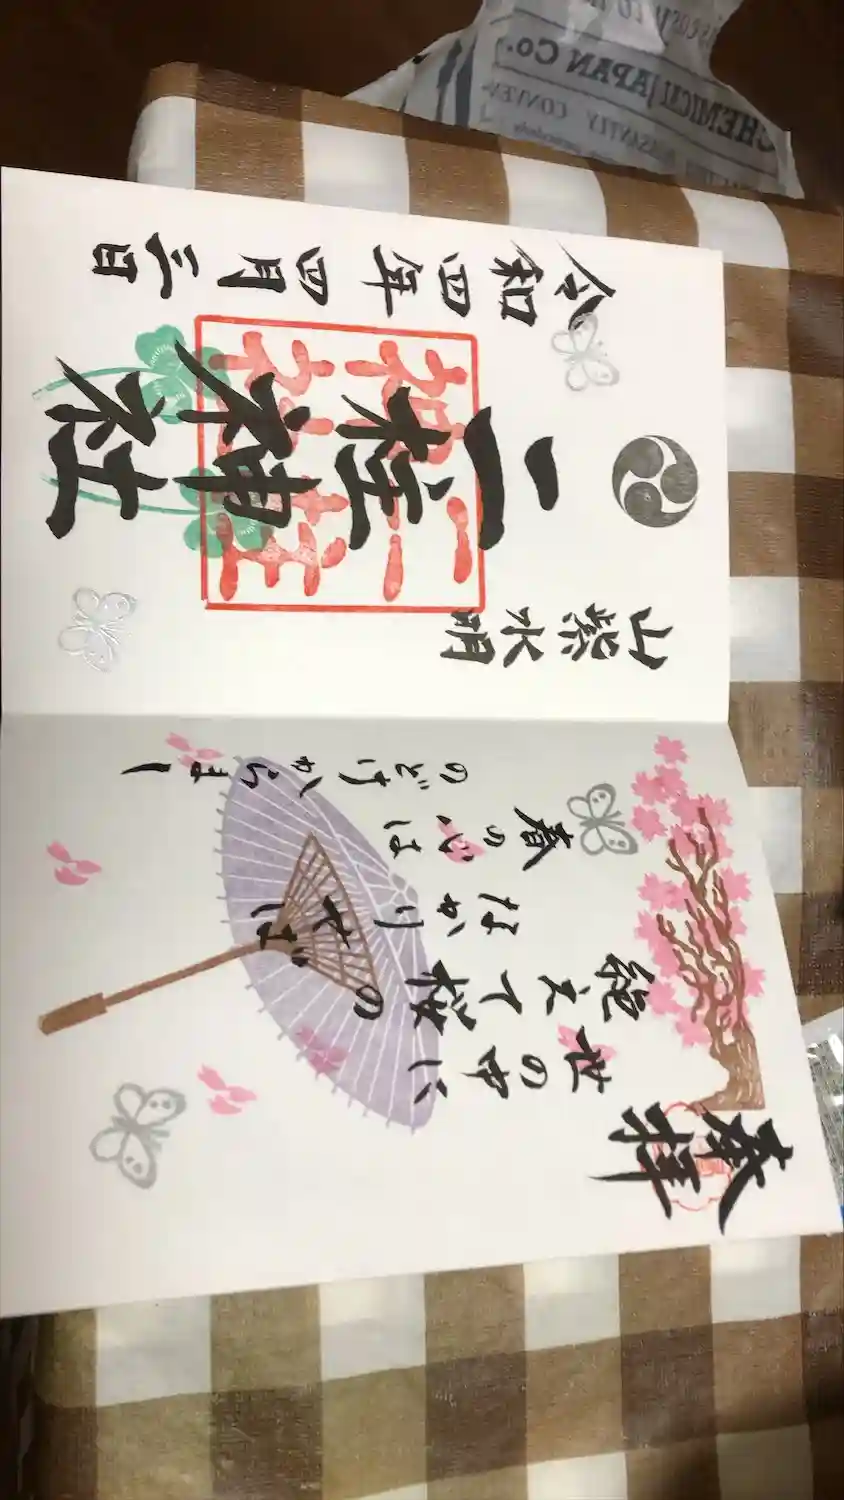 奉拝
世の中に
絶えて桜の
なかりせば
春の心は
のどけからまし
山紫水明
二柱神社
二柱
神社
令和四年四月三日
CHEMICAL JAPAN Co.